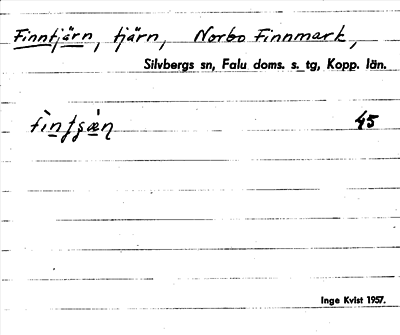 Finntjärn, tjärn, Norbo Finnmark,
Silvbergs sn, Falu doms. s. tg, Kopp. län.
45
Inge Kvist 1957.